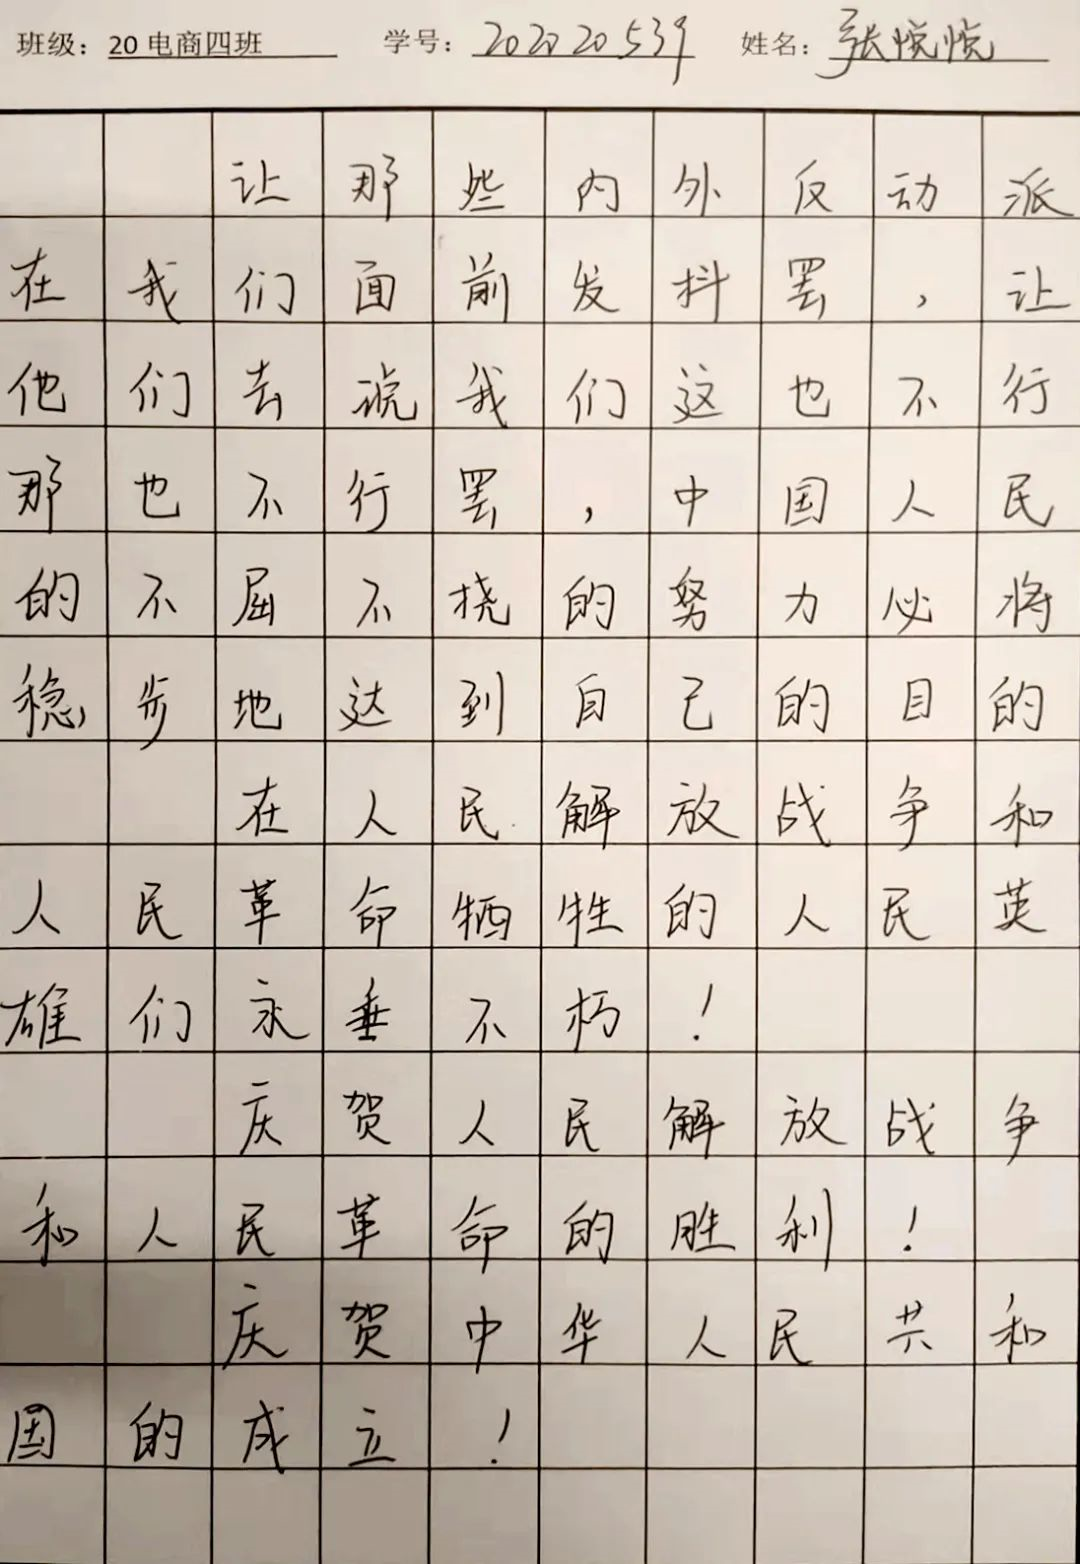 班级：20 电商四班 学号：202020539 姓名：张悦悦
让那些内外反动派
在我们面前发抖罢，让
他们去说我们这也不行
那也不行罢，中国人民
的不屈不挠的努力必将
稳步地达到自己的目的
在人民解放战争和
人民革命牺牲的人民英
雄们永垂不朽！
庆贺人民解放战争
和人民革命的胜利！
庆贺中华人民共和
国的成立！